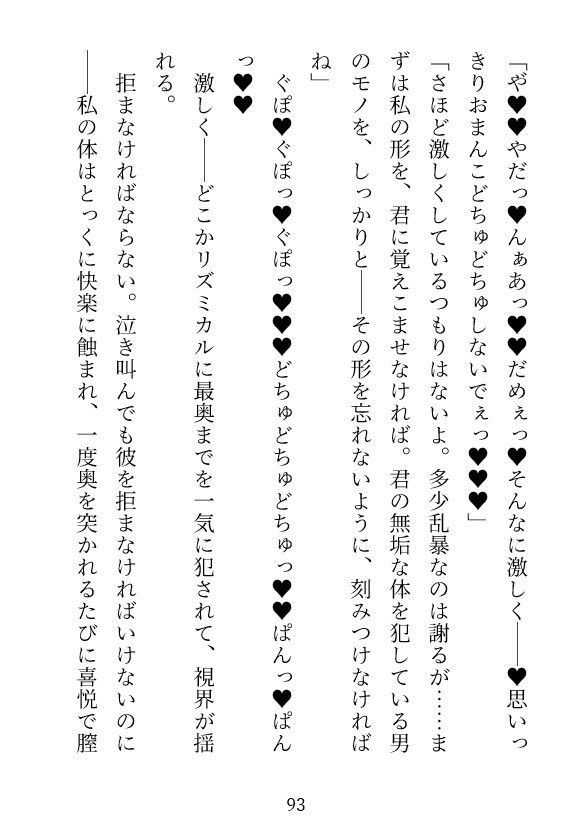 「や゙♥♥やだっ♥んぁあっ♥♥だめぇっ♥そんなに激しく――♥思いっ
きりおまんこどちゅどちゅしないでぇっ♥♥♥」
「さほど激しくしているつもりはないよ。多少乱暴なのは謝るが……ま
ずは私の形を、君に覚えこませなければ。君の無垢な体を犯している男
のモノを、しっかりと――その形を忘れないように、刻みつけなければ
ね」
ぐぽ♥ぐぽっ♥ぐぽっ♥♥♥どちゅどちゅどちゅっ♥♥ぱんっ♥ぱん
っ♥♥
激しく――どこかリズミカルに最奥までを一気に犯されて、視界が揺
れる。
拒まなければならない。泣き叫んでも彼を拒まなければいけないのに
――私の体はとっくに快楽に蝕まれ、一度奥を突かれるたびに喜悦で膣
93